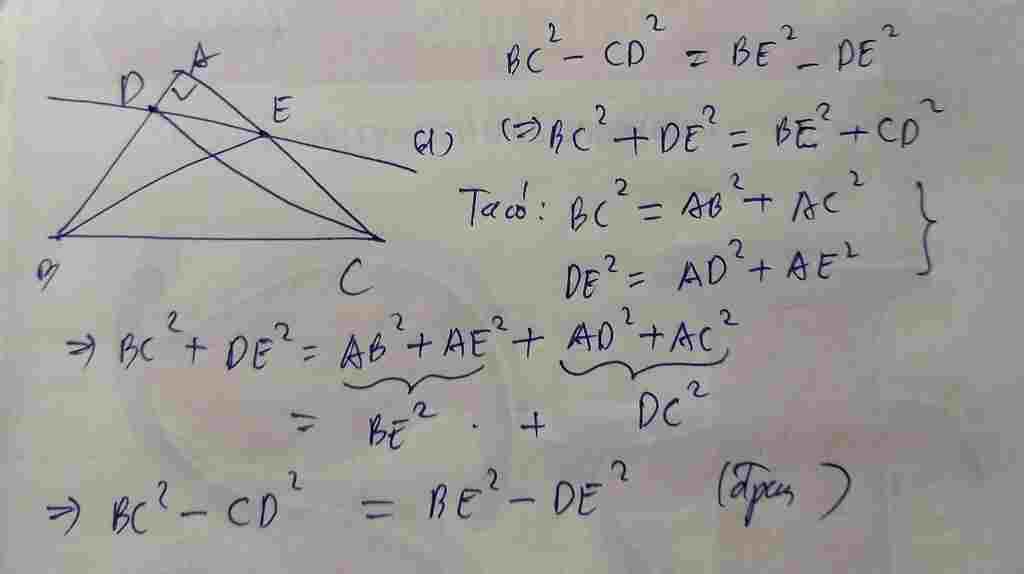 A
D
E
B
C
BC² - CD² = BE² - DE²
(⇒ BC² + DE² = BE² + CD²
Ta có: BC² = AB² + AC²
DE² = AD² + AE²
⇒ BC² + DE² = AB² + AE² + AD² + AC²
= BE² . + DC²
⇒ BC² - CD² = BE² - DE² (đpcm)